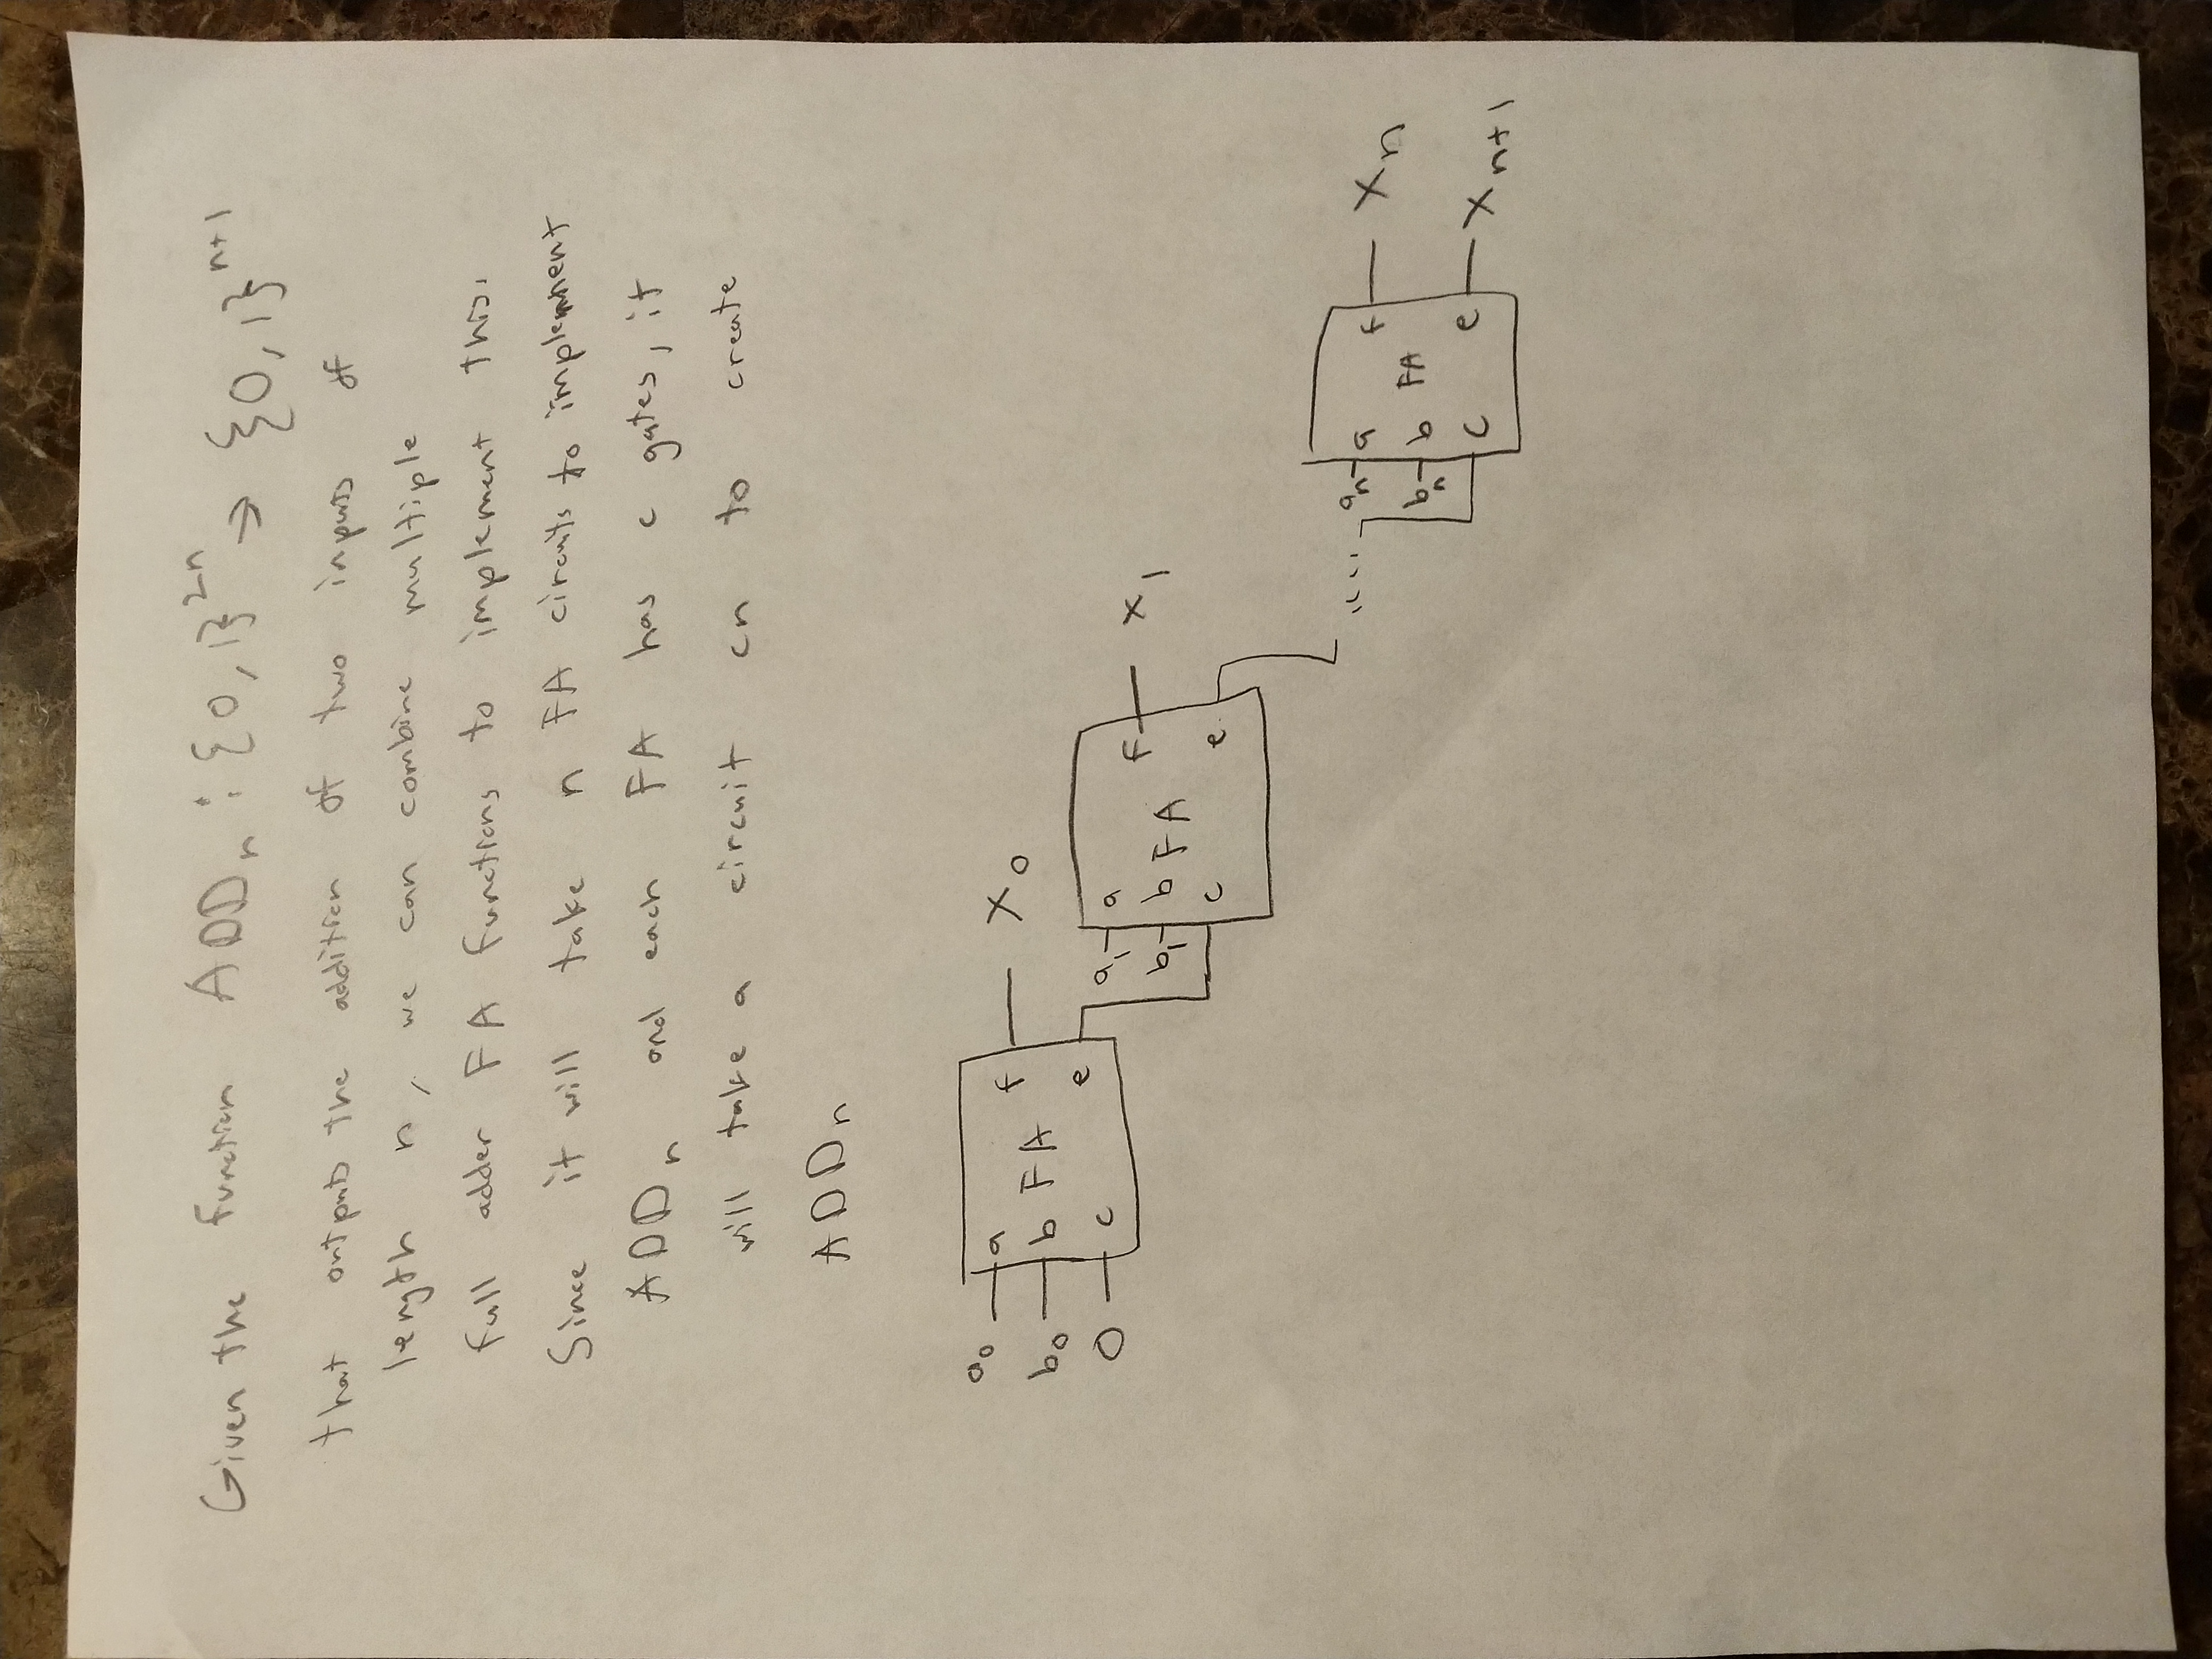 Given the function ADDₙ : {0,1}²ⁿ → {0,1}ⁿ⁺¹
that outputs the addition of two inputs of
length n, we can combine multiple
full adder FA functions to implement this.
Since it will take n FA circuits to implement
ADDₙ and each FA has c gates, it
will take a circuit cn to create
ADDₙ
a₀ a f X₀
b₀ b FA
0 c e
a₁ a f X₁
b₁ b FA
c e
....
aₙ a f Xₙ
bₙ b FA
c e Xₙ₊₁